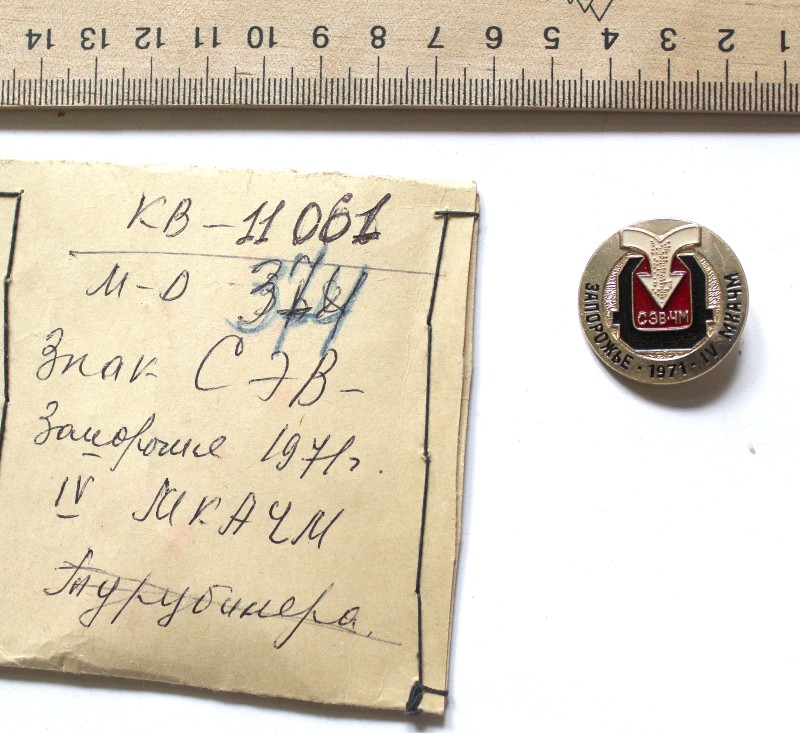 14 13 12 11 10 9 8 7 6 5 4 3 2 1
КВ-11 061
М-Д 374
Знак СЭВ-
Запорожье 1971г.
IV МКАЧМ
СЭВ·ЧМ
ЗАПОРОЖЬЕ · 1971 · IV МКАЧМ